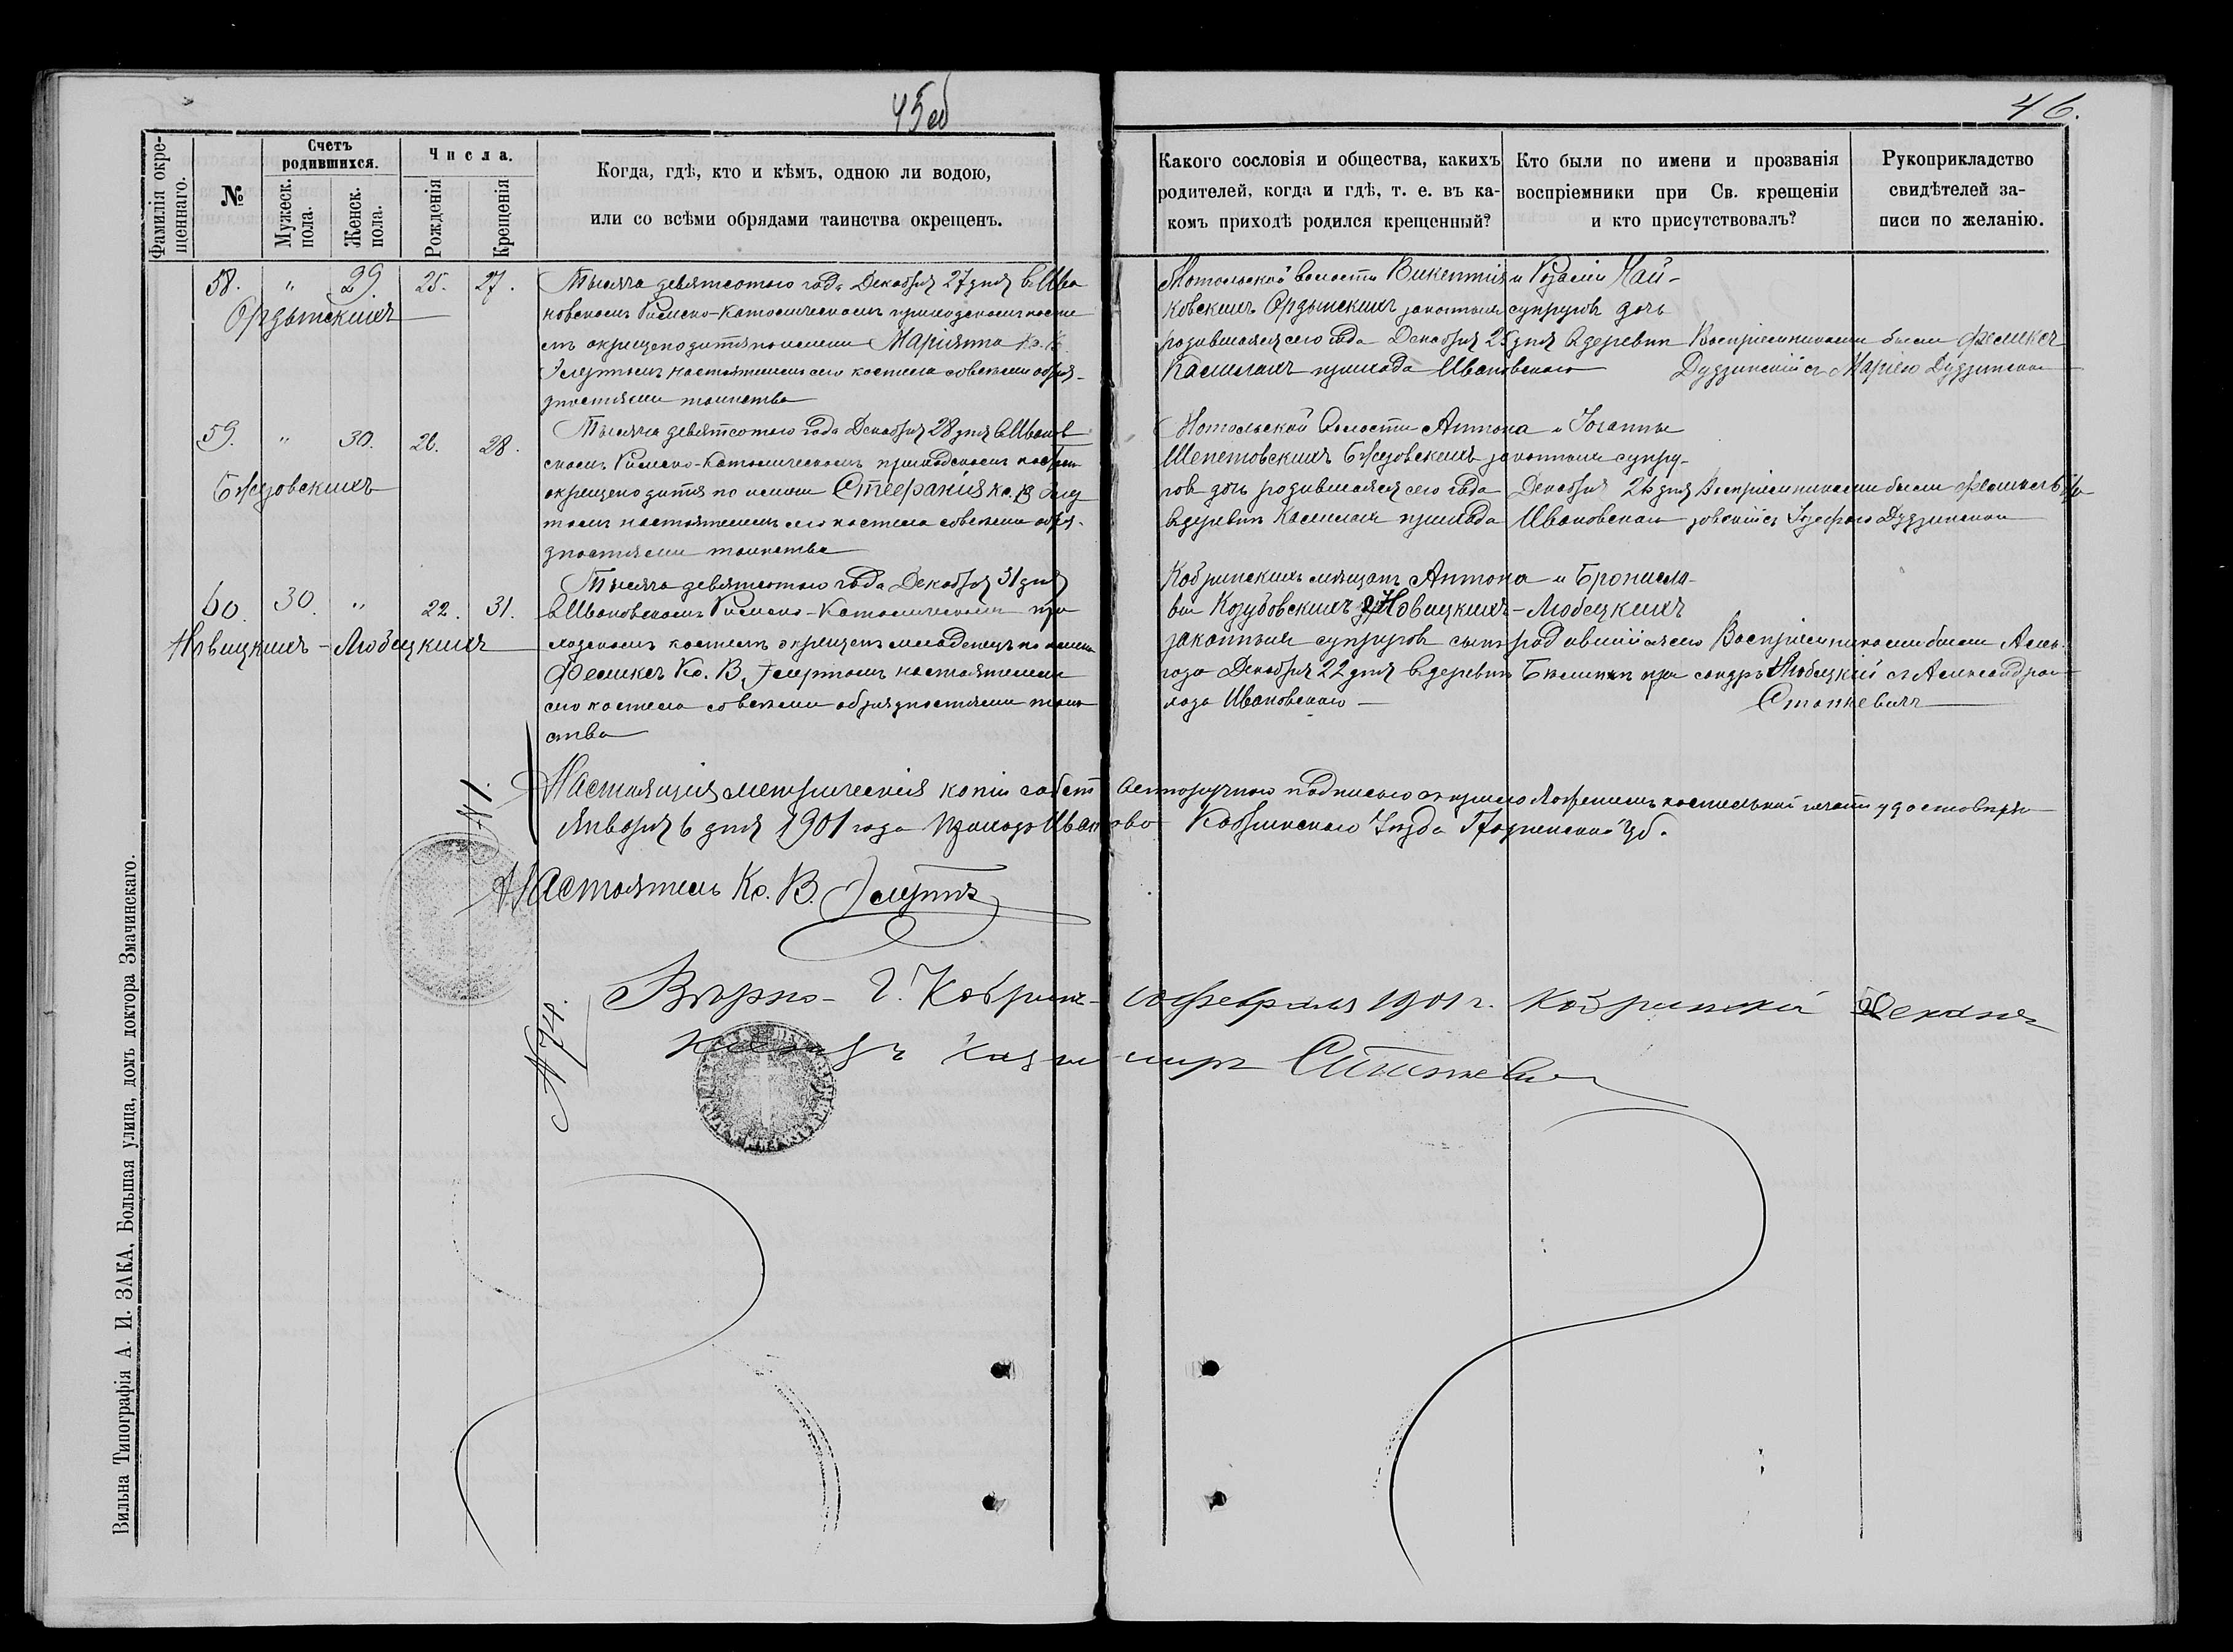 45об
46.
Фамилія окре-
щеннаго.
№
Счетъ
родившихся.
Мужеск.
пола.
Женск.
пола.
Числа.
Рожденія
Крещенія
Когда, гдѣ, кто и кѣмъ, одною ли водою,
или со всѣми обрядами таинства окрещенъ.
Какого сословія и общества, какихъ
родителей, когда и гдѣ, т. е. въ ка-
комъ приходѣ родился крещенный?
Кто были по имени и прозванія
воспріемники при Св. крещеніи
и кто присутствовалъ?
Рукоприкладство
свидѣтелей за-
писи по желанію.
58. " 29. 25. 27.
Ордынскихъ
Тысяча девятсотого года Декабря 27 дня в Ива
новскомъ Римско-Католическомъ приходскомъ косте
лѣ окрещено дитя по имени Маріянна Кс. В.
настоятелемъ сего костела со всѣми обряд-
ностями таинства
Мотольской волости Викентія и Розаліи Чай-
ковскихъ Ордынскихъ законныхъ супруговъ дочь
родившаяся сего года Декабря 25 дня в деревни
прихода Ивановскаго
Воспріемниками были Феликсъ
Дудзинскій съ Маріею Дудзинскою
59. " 30. 26. 28.
Тысяча девятсотого года Декабря 28 дня в Иванов
скомъ Римско-Католическомъ приходскомъ костелѣ
окрещено дитя по имени Стефанія Кс. В.
томъ настоятелемъ сего костела со всѣми обряд-
ностями таинства
Мотольской волости Антона и Іоанны
Шепетовскихъ законныхъ супру-
говъ дочь родившаяся сего года Декабря 26 дня
в деревни прихода Ивановскаго
Воспріемниками были
съ Іозефою Дудзинскою
60. 30. " 22. 31.
Новицкихъ-Любецкихъ
Тысяча девятсотого года Декабря 31 дня
в Ивановскомъ Римско-Католическомъ при
ходскомъ костелѣ окрещенъ младенецъ по имени
Феликсъ Кс. В. настоятелемъ
сего костела со всѣми обрядностями таин
ства
Кобринскихъ мѣщанъ Антона и БрониСла-
вы Козубовскихъ Новицкихъ-Любецкихъ
законныхъ супруговъ сынъ родившійся сего
года Декабря 22 дня в деревни при
хода Ивановскаго
Воспріемниками были Алек-
сандръ Любецкій съ Александрою
Станкевичъ
№ 1.
Настоящія метрическія копіи собственноручною подписью съ приложеніемъ костельной печати удостовѣряю
Января 6 дня 1901 года Приходъ Иваново Кобринскаго Уѣзда Гродненской Губ.
Настоятель Кс. В.
№ 74.
Вѣрно - Г. Кобринъ - 10 Февраля 1901 г. Кобринскій Деканъ
Ксендзъ Казимиръ
Вильна Типографія А. И. ЗАКА, Большая улица, домъ доктора Змачинскаго.